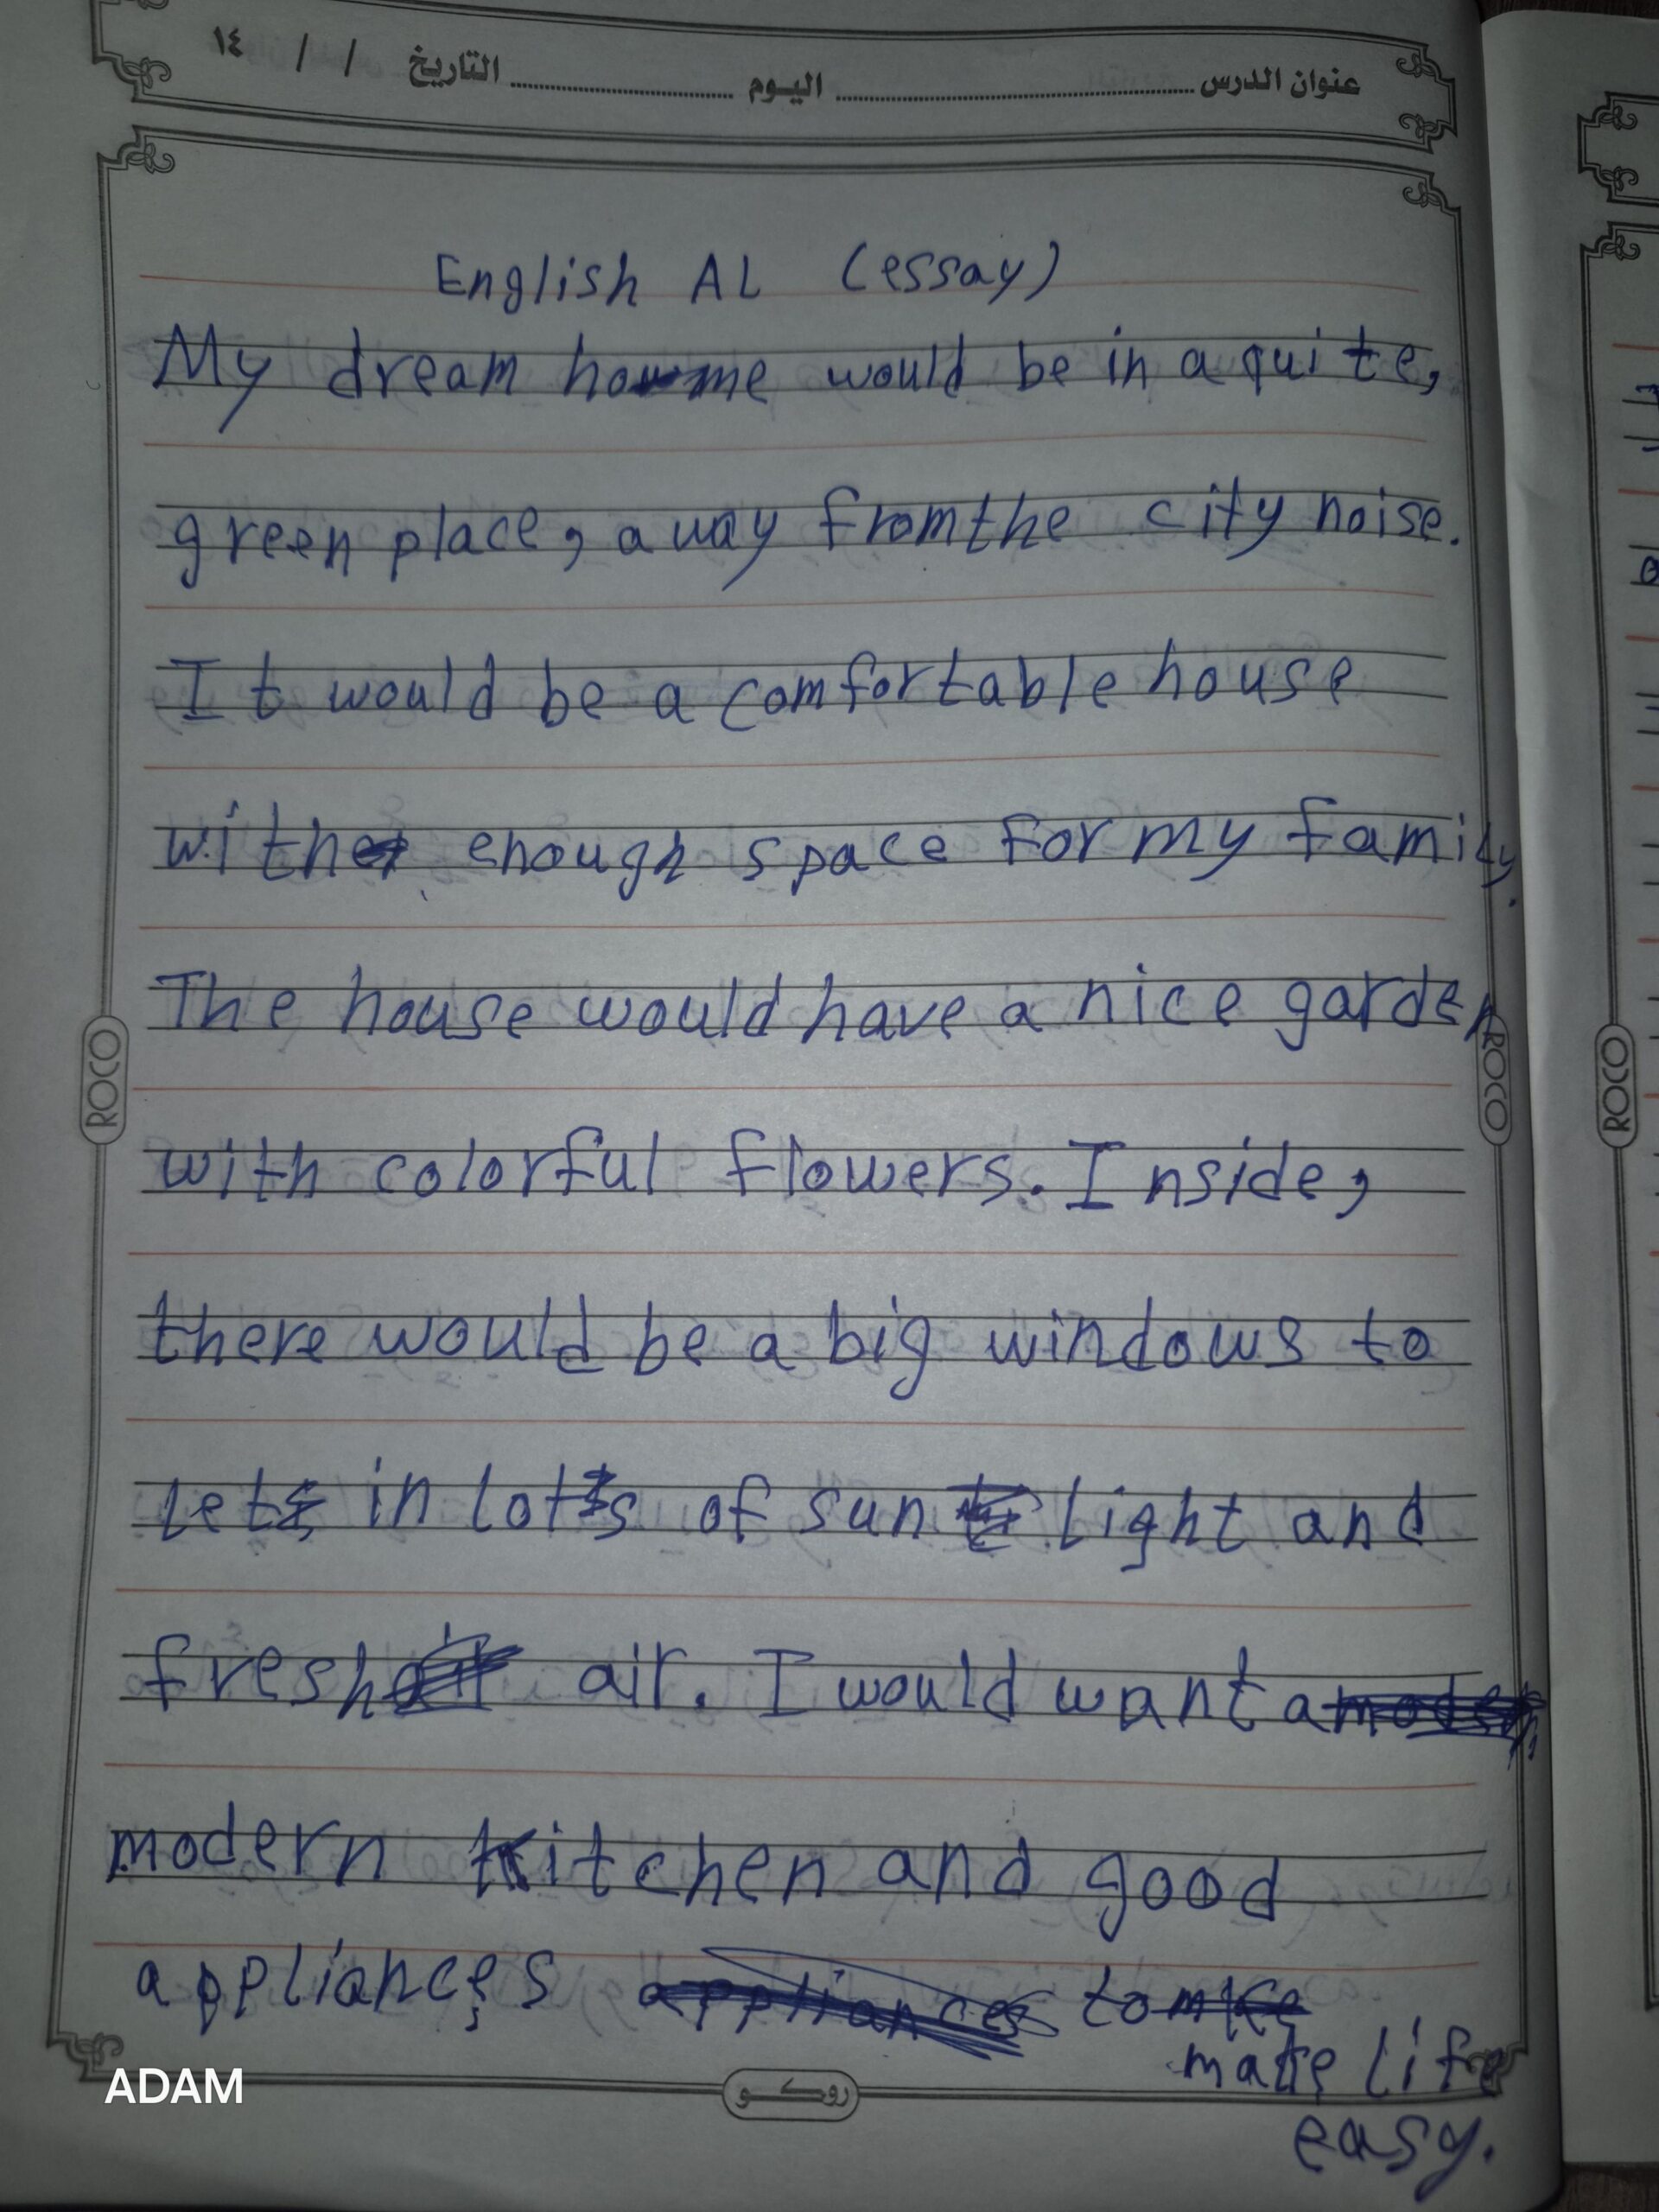 عنوان الدرس ........ اليوم ........ التاريخ / / ١٤
English AL (essay)
My dream home would be in a quite,
green place, away from the city noise.
It would be a comfortable house
with enough space for my family.
The house would have a nice garden
with colorful flowers. Inside,
there would be a big windows to
let in lots of sun light and
fresh air. I would want a
modern kitchen and good
appliances to
make life
easy.
ROCO
ROCO
ROCO
روكو
ADAM